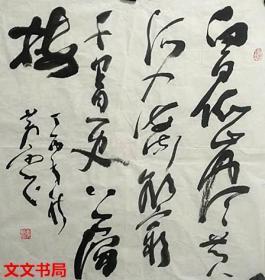 白日依山尽黄
河入海流欲穷
千里目更上一层
楼
文文书局